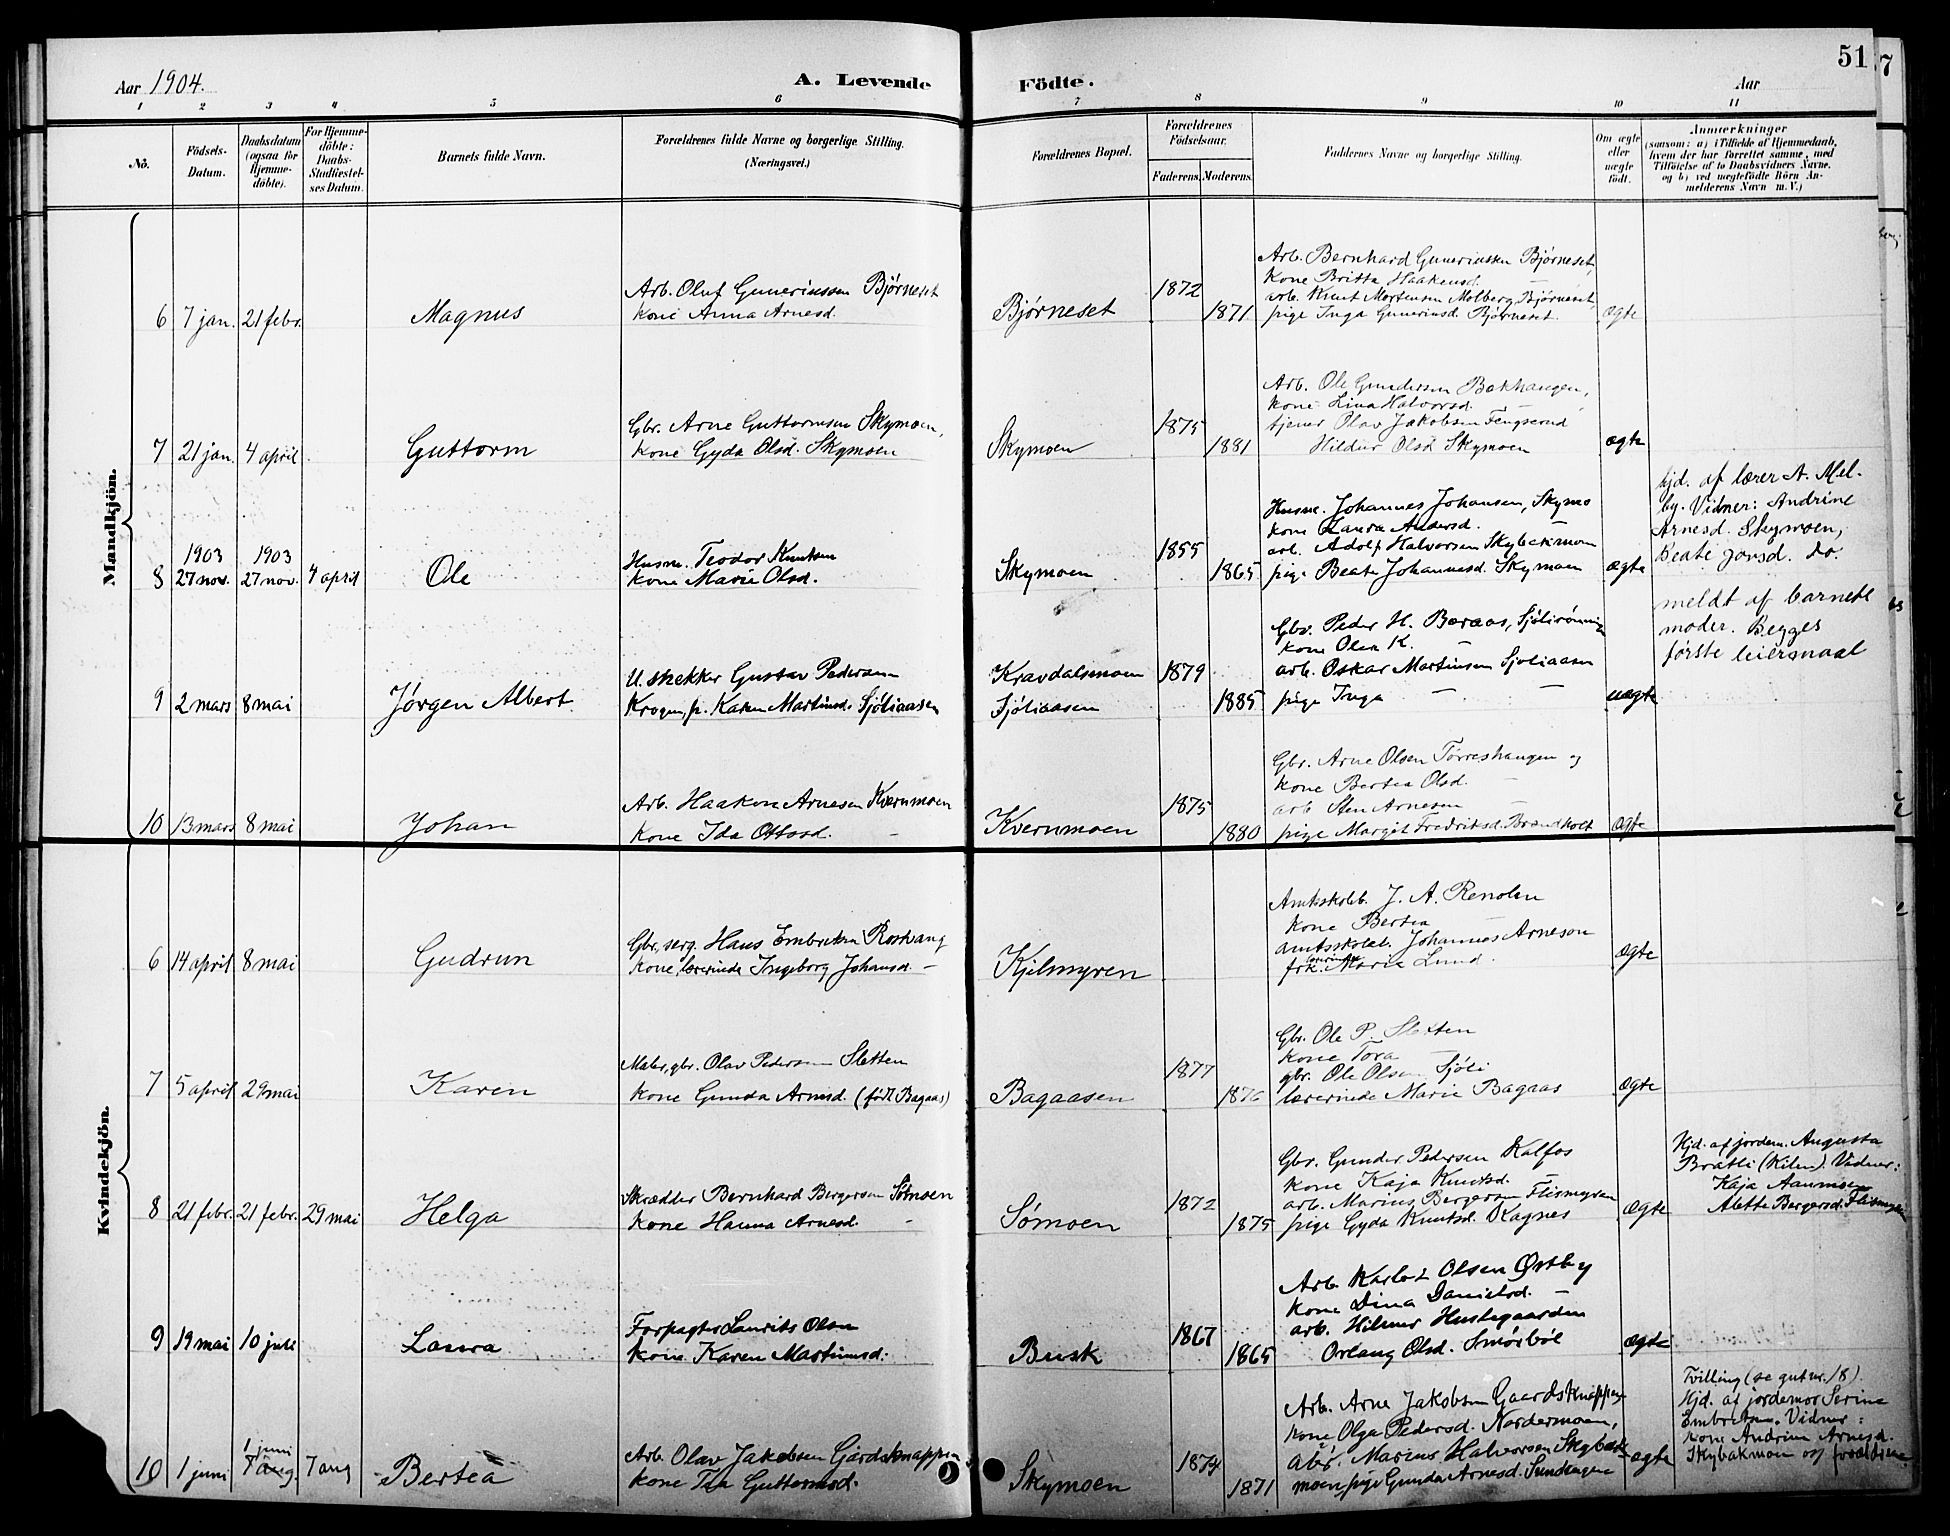 Aar 1904.
A. Levende
Födte.
Aar
51
7
1 2 3 4 5 6 7 8 9 10 11
Nö.
Födsels-
Datum.
Daabsdatum
(ogsaa for
Hjemme-
döbte).
For Hjemme-
döbte:
Daabs-
Stadfæstel-
ses Datum.
Barnets fulde Navn.
Forældrenes fulde Navne og borgerlige Stilling.
(Næringsvei.)
Forældrenes Bopæl.
Forældrenes
Födselsaar.
Faderens. Moderens.
Faddernes Navne og borgerlige Stilling.
Om ægte
eller
uægte
födt.
Anmærkninger
(saasom: a) i Tilfælde af Hjemmedaab,
hvem der har forrettet samme, med
Tilföielse af to Daabsvidners Navne.
og b) ved uægtefödte Börn An-
melderens Navn m. V.)
Mandkjön.
6 7 jan. 21 febr. Magnus
Arb. Oluf Guneriussen Bjørneset
kone Anna Arnesd.
Bjørneset 1872 1871
Arb. Bernhard Gunerinssen Bjørneset,
kone Britta Haakensd. —
arb. Knut Mortensen Molberg, Bjørneset,
pige Inga Gunerinsd. Bjørneset.
ægte
7 21 jan. 4 april Guttorm
Gbr. Arne Guttormsen Skymoen,
kone Gyda Olsd. Skymoen
Skymoen 1875 1881
Arb. Ole Gundersen Bakhaugen,
kone Lina Halvorsd.
tjener Olav Jakobsen Fengserud
Hildur Olsd Skymoen
ægte
1903 1903
8 27 nov. 27 nov. 4 april Ole
Husm. Teodor Knutsen
kone Marie Olsd.
Skymoen 1855 1865
Husm. Johannes Johansen, Skymo
kone Laura Andersd. —
arb. Adolf Halvorsen Skybakmoen
pige Beate Johannesd. Skymoen
ægte
hjd. af lærer A. Mel-
by. Vidner: Andrine
Arnesd. Skymoen,
Beate Jonsd. do.
9 2 mars 8 mai Jørgen Albert
Gustav Pedersen
Krogen, p. Karen Martinsd. Sjøliaasen
Kravdalsmoen
Sjøliaasen
1879 1885
Gbr. Peder H. Beraas,
kone Olea K. —
arb. Oskar Martinsen Sjøliaasen
pige Inga — —
uægte
meldt af barnets
moder. Begges
første leiersmaal
10 13 mars 8 mai Johan
Arb. Haakon Arnesen Kvernmoen
kone Ida Ottosd. —
Kvernmoen 1875 1880
Gbr. Arne Olsen Torreshaugen og
kone Bertea Olsd. —
arb Sten Arnesen
pige Margit Fredriksd. Brandholt
ægte
Kvindekjön.
6 14 april 8 mai Gudrun
Gbr, serg. Hans Embretsen Roskvang
kone lærerinde Ingeborg Johansd. —
Kjilmyren
Amtsskolb. J. A. Renolen
kone Bertea —
amtsskolel. Johannes Arneson
lærerinde
frk. Marie Lund.
ægte
7 5 april 29 mai Karen
Maler, gbr. Olav Pedersen Sletten
kone Gunda Arnesd. (født Bagaas)
Bagaasen 1877 1876
Gbr. Ole P. Sletten
kone Tora —
gbr. Ole Olsen Sjøli
lærerinde Marie Bagaas
ægte
8 21 febr. 21 febr. 29 mai Helga
Skrædder Bernhard Bergersen Sømoen
kone Hanna Arnesd. —
Sømoen 1872 1875
Gbr. Gunder Pedersen Kalfos
kone Kaja Knutsd. —
arb. Marius Bergersen Flismyren
pige Gyda Knutsd. Kagnes
ægte
Hjd. af jordem. Augusta
Bratli (Kilen). Vidner:
Kaja
Alette Bergersd. Flismyren
9 19 mai 10 juli Laura
Forpagter Laurits Olsen
kone Karen Martinsd.
Busk 1867 1865
Arb. Olsen Østby
kone Dina Danielsd. —
arb. Hilmar Hustegaarden
Orlaug Olsd. Smørbøl
ægte
10 1 juni 1 juni 7 aug. 7 aug Bertea
Arb. Olav Jakobsen Gjardsknappen
kone Tea Guttormsd.
Skymoen 1874 1871
Arb. Arne Jakobsen Gaardsknappen
kone Olga Pedersd. Nordermoen,
arb. Marius Halvorsen Skybak-
moen, pige Gunda Arnesd.
ægte
Tvilling (se gut nr. 18).
Hjd. af jordemor Serine
Embretsen. Vidner:
kone Andrine Arnesd.
Skybakmoen og forældrene